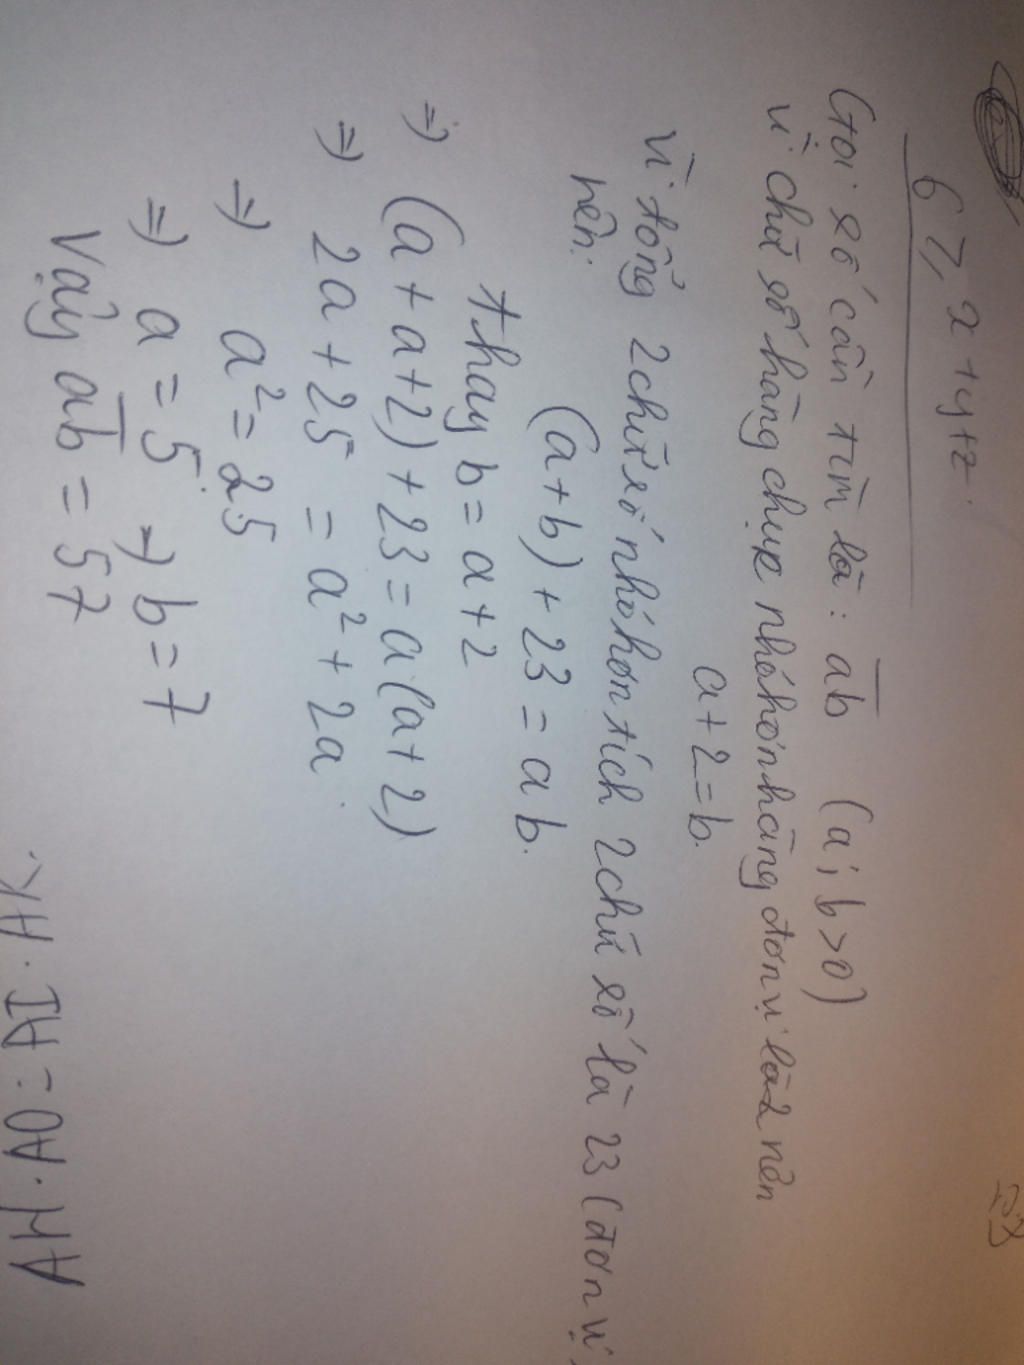 6 ≥ x + y + z
Gọi số cần tìm là: ab (a; b > 0)
Vì chữ số hàng chục nhỏ hơn hàng đơn vị là 2 nên
a + 2 = b.
Vì tổng 2 chữ số nhỏ hơn tích 2 chữ số là 23 (đơn vị)
nên:
(a + b) + 23 = a b.
thay b = a + 2
=> (a + a + 2) + 23 = a.(a + 2)
=> 2a + 25 = a² + 2a.
=> a² = 25
=> a = 5. => b = 7
Vậy ab = 57
AM.AO = AI.AK.